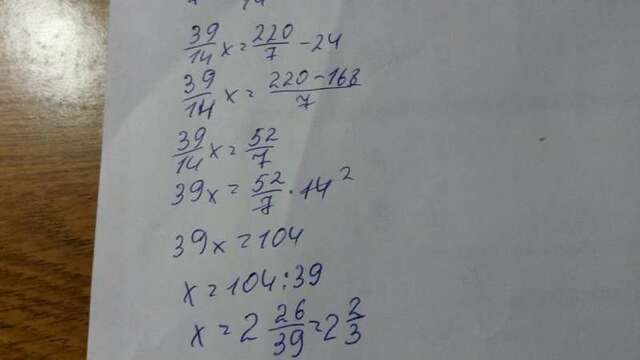 14
39/14 x = 220/7 - 24
39/14 x = (220-168)/7
39/14 x = 52/7
39x = 52/7 · 14 ²
39x = 104
x = 104 : 39
x = 2 26/39 = 2 2/3